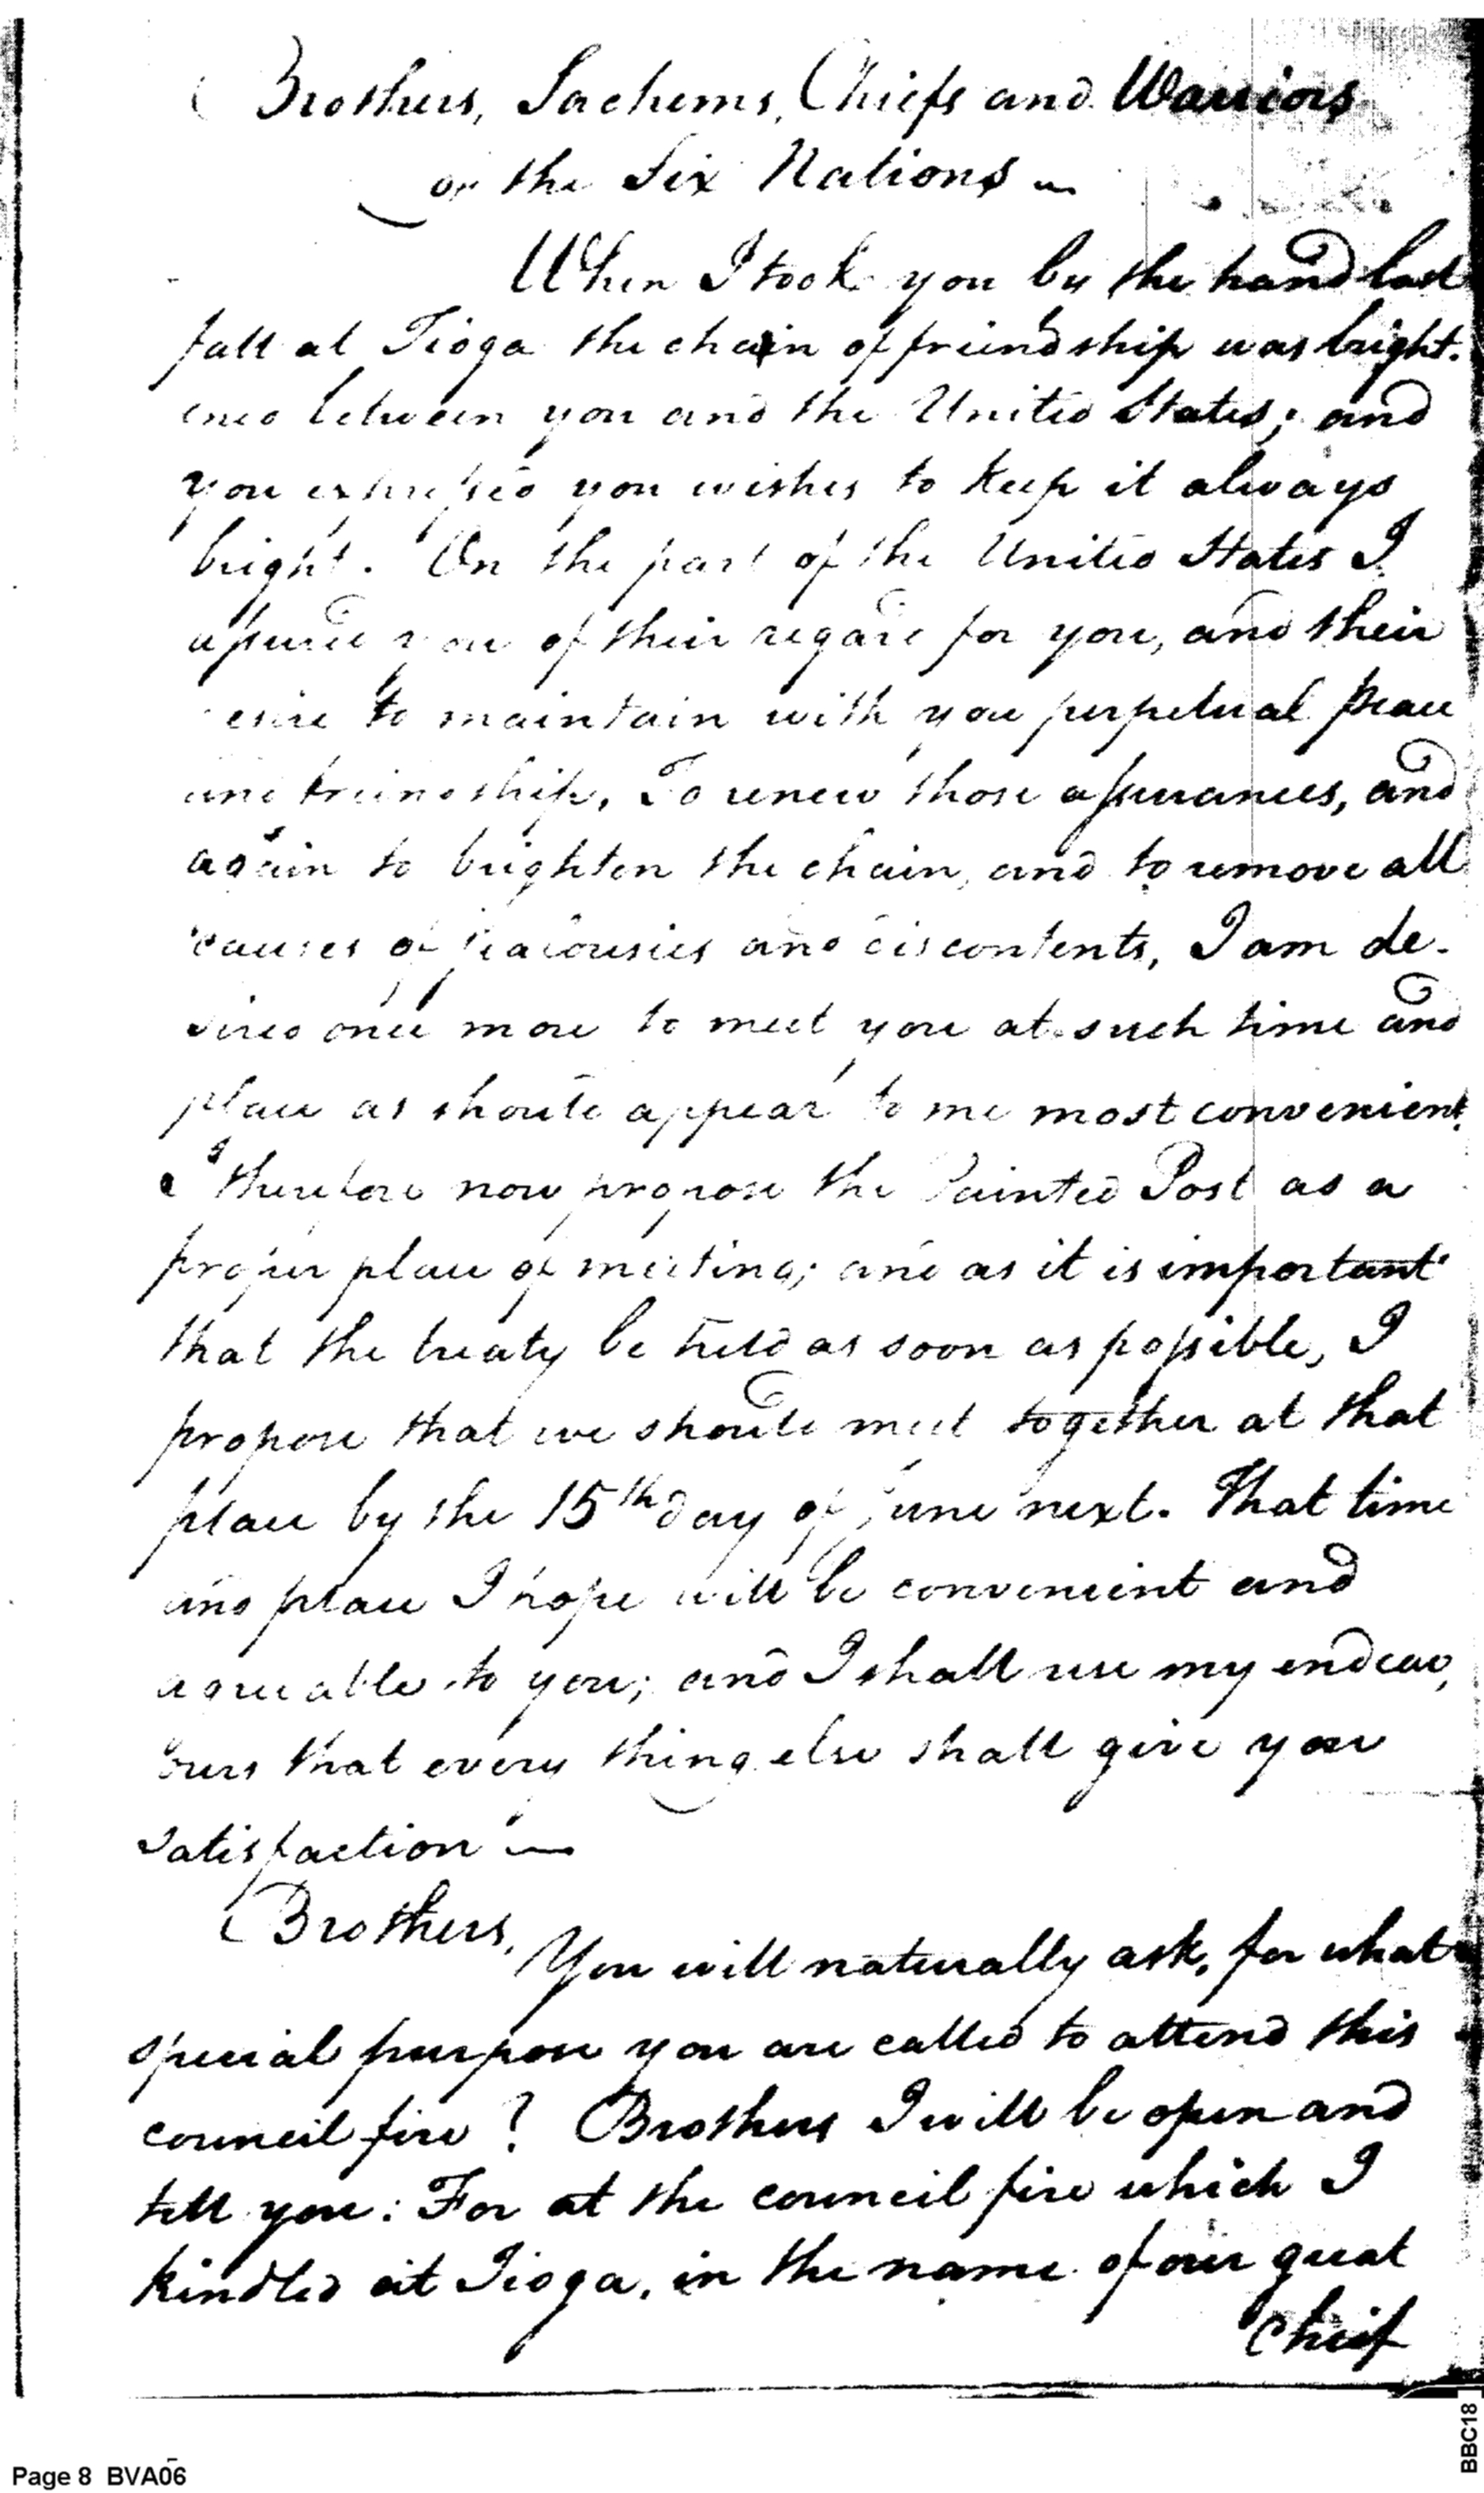 Brothers, Sachems, Chiefs and Warriors
of the Six Nations
When I took you by the hand last
fall at Tioga the chain of friendship was bright.
ened between you and the United States; and
you expressed you wishes to keep it always
bright. On the part of the United States I
assured you of their regard for you, and their
desire to maintain with you perpetual peace
and friendship. To renew those assurances, and
again to brighten the chain, and to remove all
causes of jealousies and discontents, I am de-
sired once more to meet you at such time and
place as should appear to me most convenient.
I therefore now propose the Painted Post as a
proper place of meeting; and as it is important
that the treaty be held as soon as possible, I
propose that we should meet together at that
place by the 15th day of June next. That time
and place I hope will be convenient and
agreeable to you; and I shall use my endeav,
ours that every thing else shall give you
satisfaction
Brothers,
You will naturally ask, for what
special purpose you are called to attend this
council fire? Brothers I will be open and
tell you: For at the council fire which I
kindled at Tioga, in the name of our great
Chief
Page 8 BVA06
BBC18